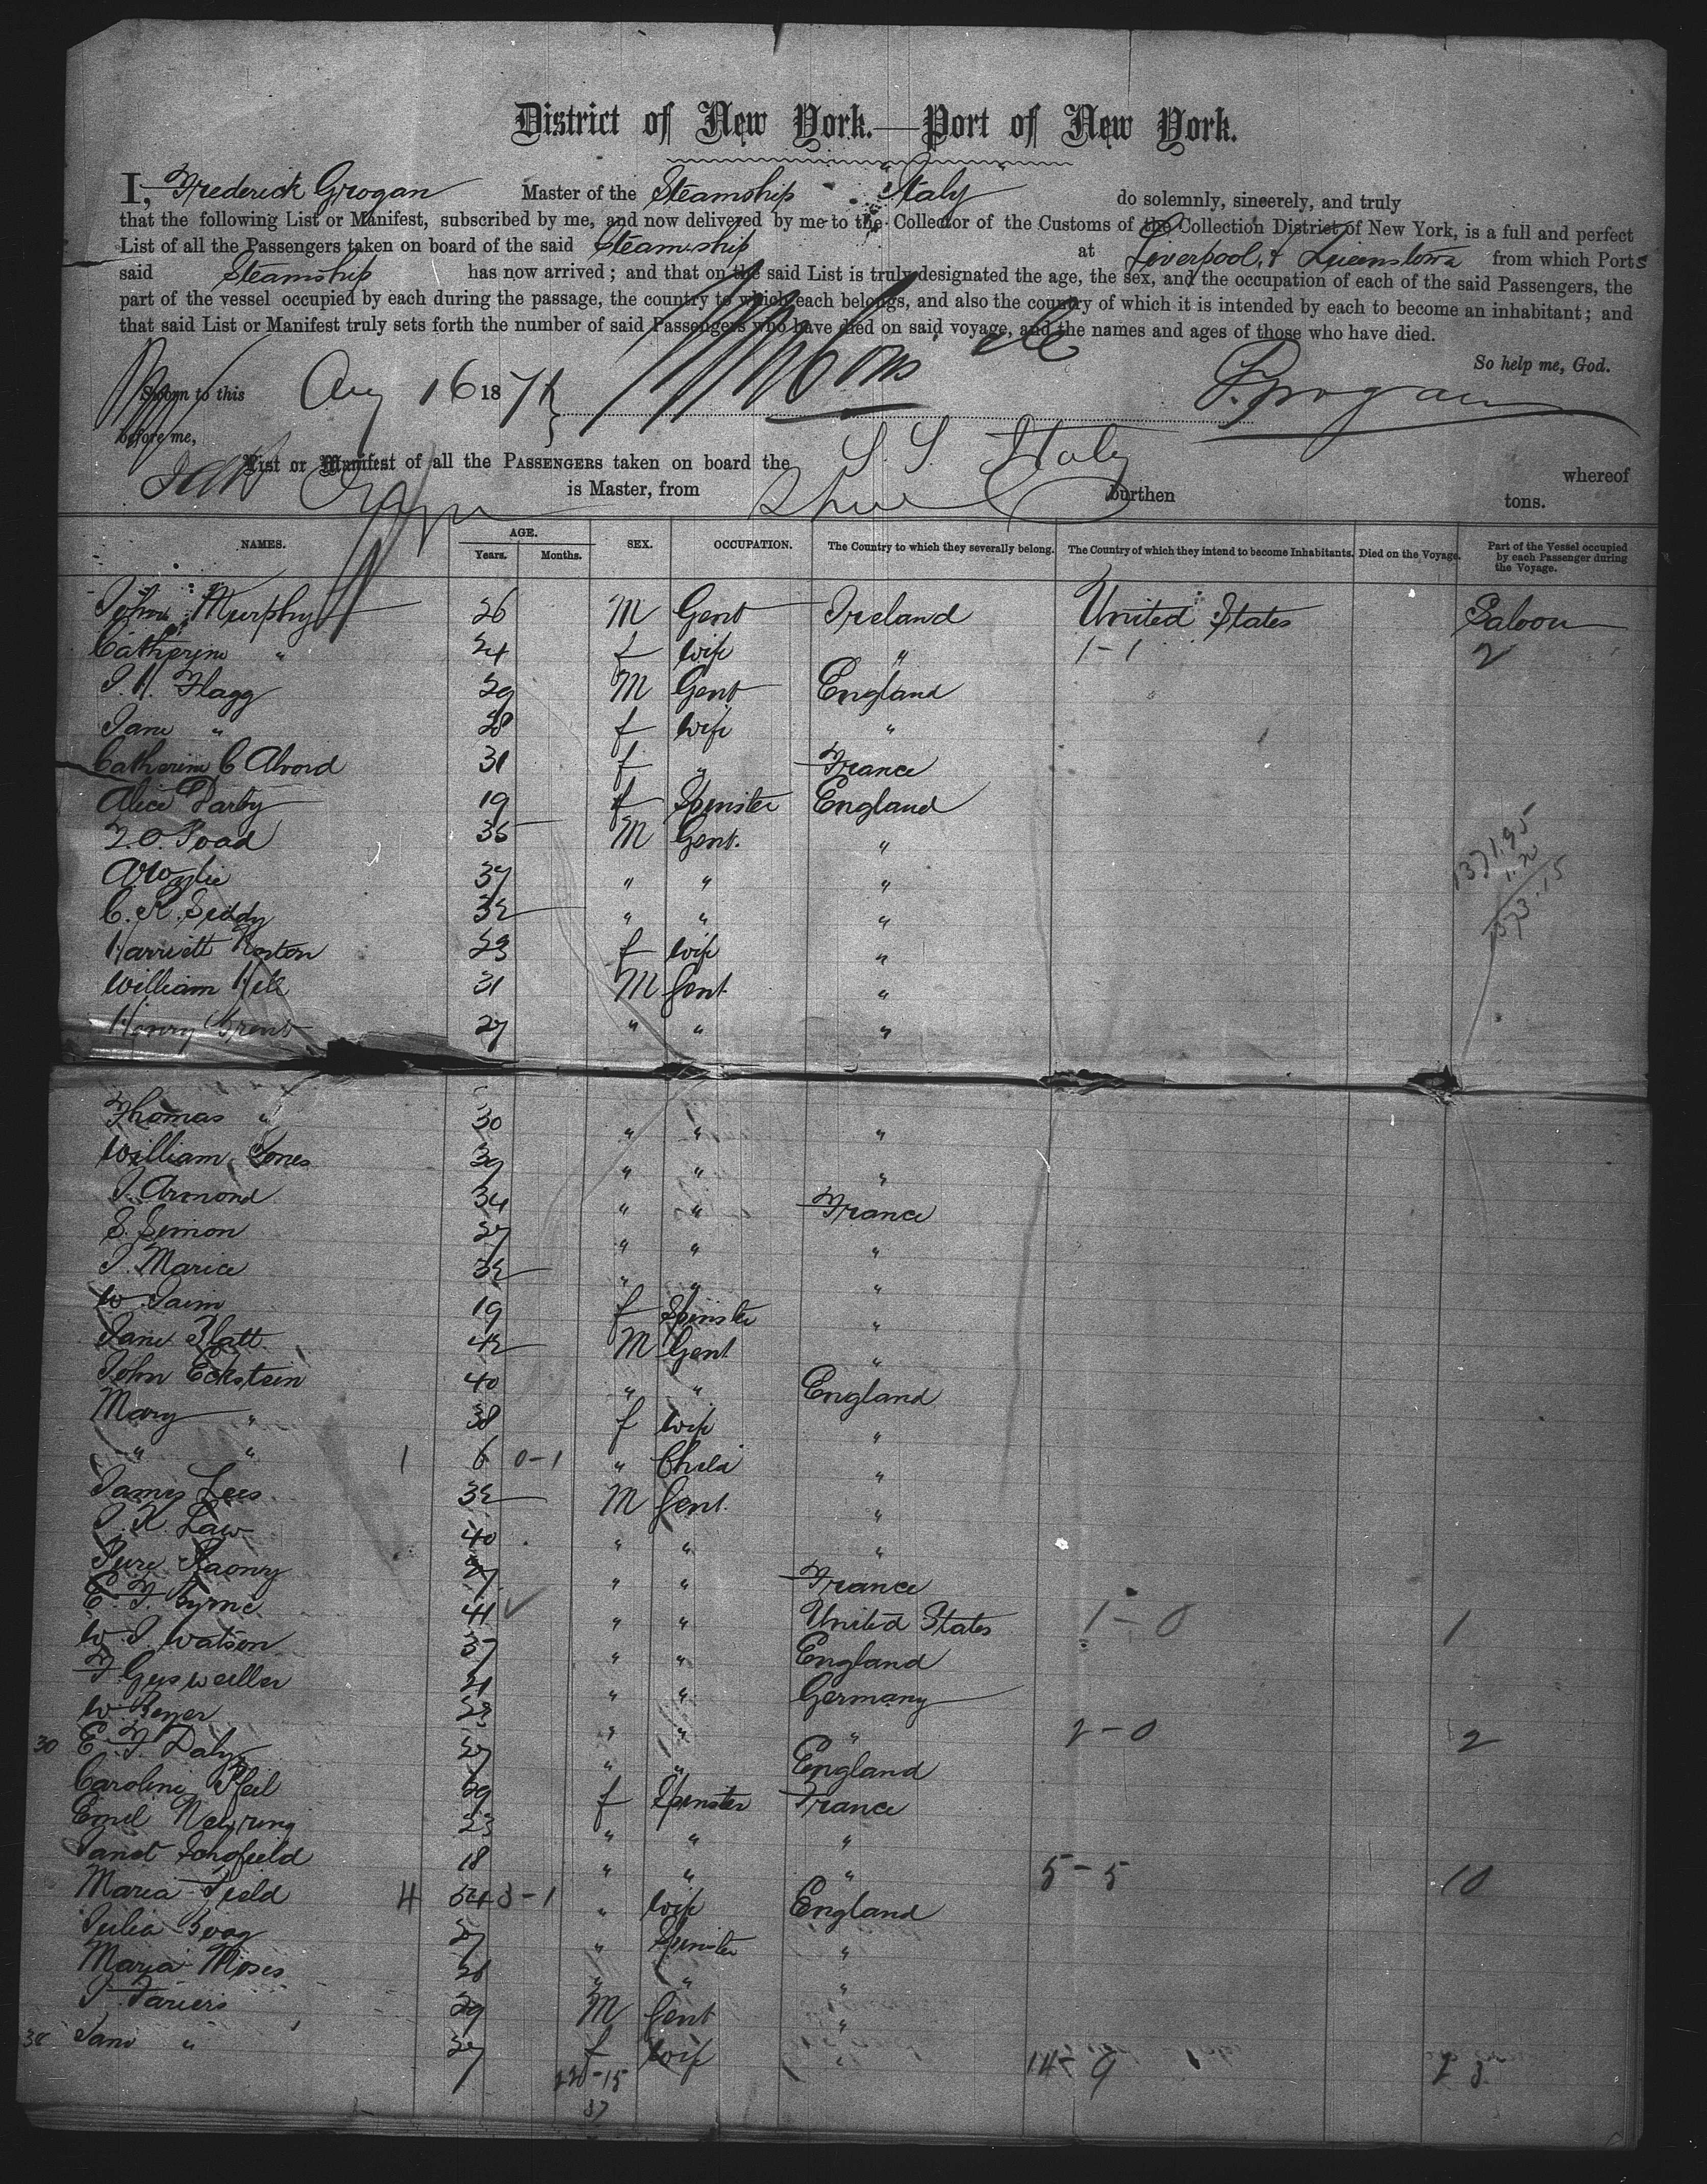 District of New York.—Port of New York.
I, Frederick Grogan Master of the Steamship "Italy" do solemnly, sincerely, and truly
that the following List or Manifest, subscribed by me, and now delivered by me to the Collector of the Customs of the Collection District of New York, is a full and perfect
List of all the Passengers taken on board of the said Steamship at Liverpool & Queenstown from which Ports
said Steamship has now arrived; and that on the said List is truly designated the age, the sex, and the occupation of each of the said Passengers, the
part of the vessel occupied by each during the passage, the country to which each belongs, and also the country of which it is intended by each to become an inhabitant; and
that said List or Manifest truly sets forth the number of said Passengers who have died on said voyage, and the names and ages of those who have died.
So help me, God.
Sworn to this Aug 16 187
F. Grogan
before me,
List or Manifest of all the PASSENGERS taken on board the S. S. Italy whereof
is Master, from burthen tons.
NAMES. AGE. Years. Months. SEX. OCCUPATION. The Country to which they severally belong. The Country of which they intend to become Inhabitants. Died on the Voyage. Part of the Vessel occupied by each Passenger during the Voyage.
John Murphy 26 M Gent Ireland United States Saloon
Catherine " 24 f wife " 1-1 2
J. H. Flagg 29 M Gent England
Jane " 28 f wife "
Catherine C Alvord 31 f " France
Alice Darby 19 f Spinster England
T. O. Poad 36 M Gent. "
37 " " "
C. K. Siddy 32 " " "
Harriett 23 f wife "
William Hill 31 M Gent "
Henry 27 " " "
Thomas " 30 " " "
William Jones 39 " " "
J. Armond 34 " " France
S. Simon 27 " " "
J. Marice 32 " " "
W. 19 f Spinster "
Jane Platt 42 M Gent "
John Eckstein 40 " " England
Mary " 38 f wife "
" " 1 6 0-1 " Child "
James Lees 32 M Gent. "
J. K. Law 40 " " "
27 " " France
E. F. Byrne 41 " " United States 1-0 1
W. J. Watson 37 " " England
F. Gysweiller 21 " " Germany
W. Beyer 23 " " " 2-0 2
30 E. F. Daly 27 " " England
Caroline Pfeil 29 f Spinster France
Emil Nehring 23 " " "
Janet Schofield 18 " " " 5-5 10
Maria Field 4 54 0-1 " wife England
Julia 27 " Spinster "
Maria Moses 26 " " "
J. 29 M Gent "
38 Jane " 27 f wife " 14-9 23